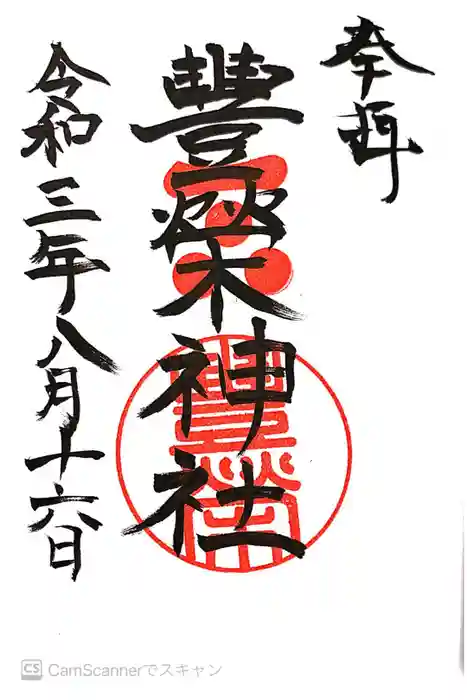 奉拝
豐榮神社
令和三年八月十六日
CS CamScannerでスキャン